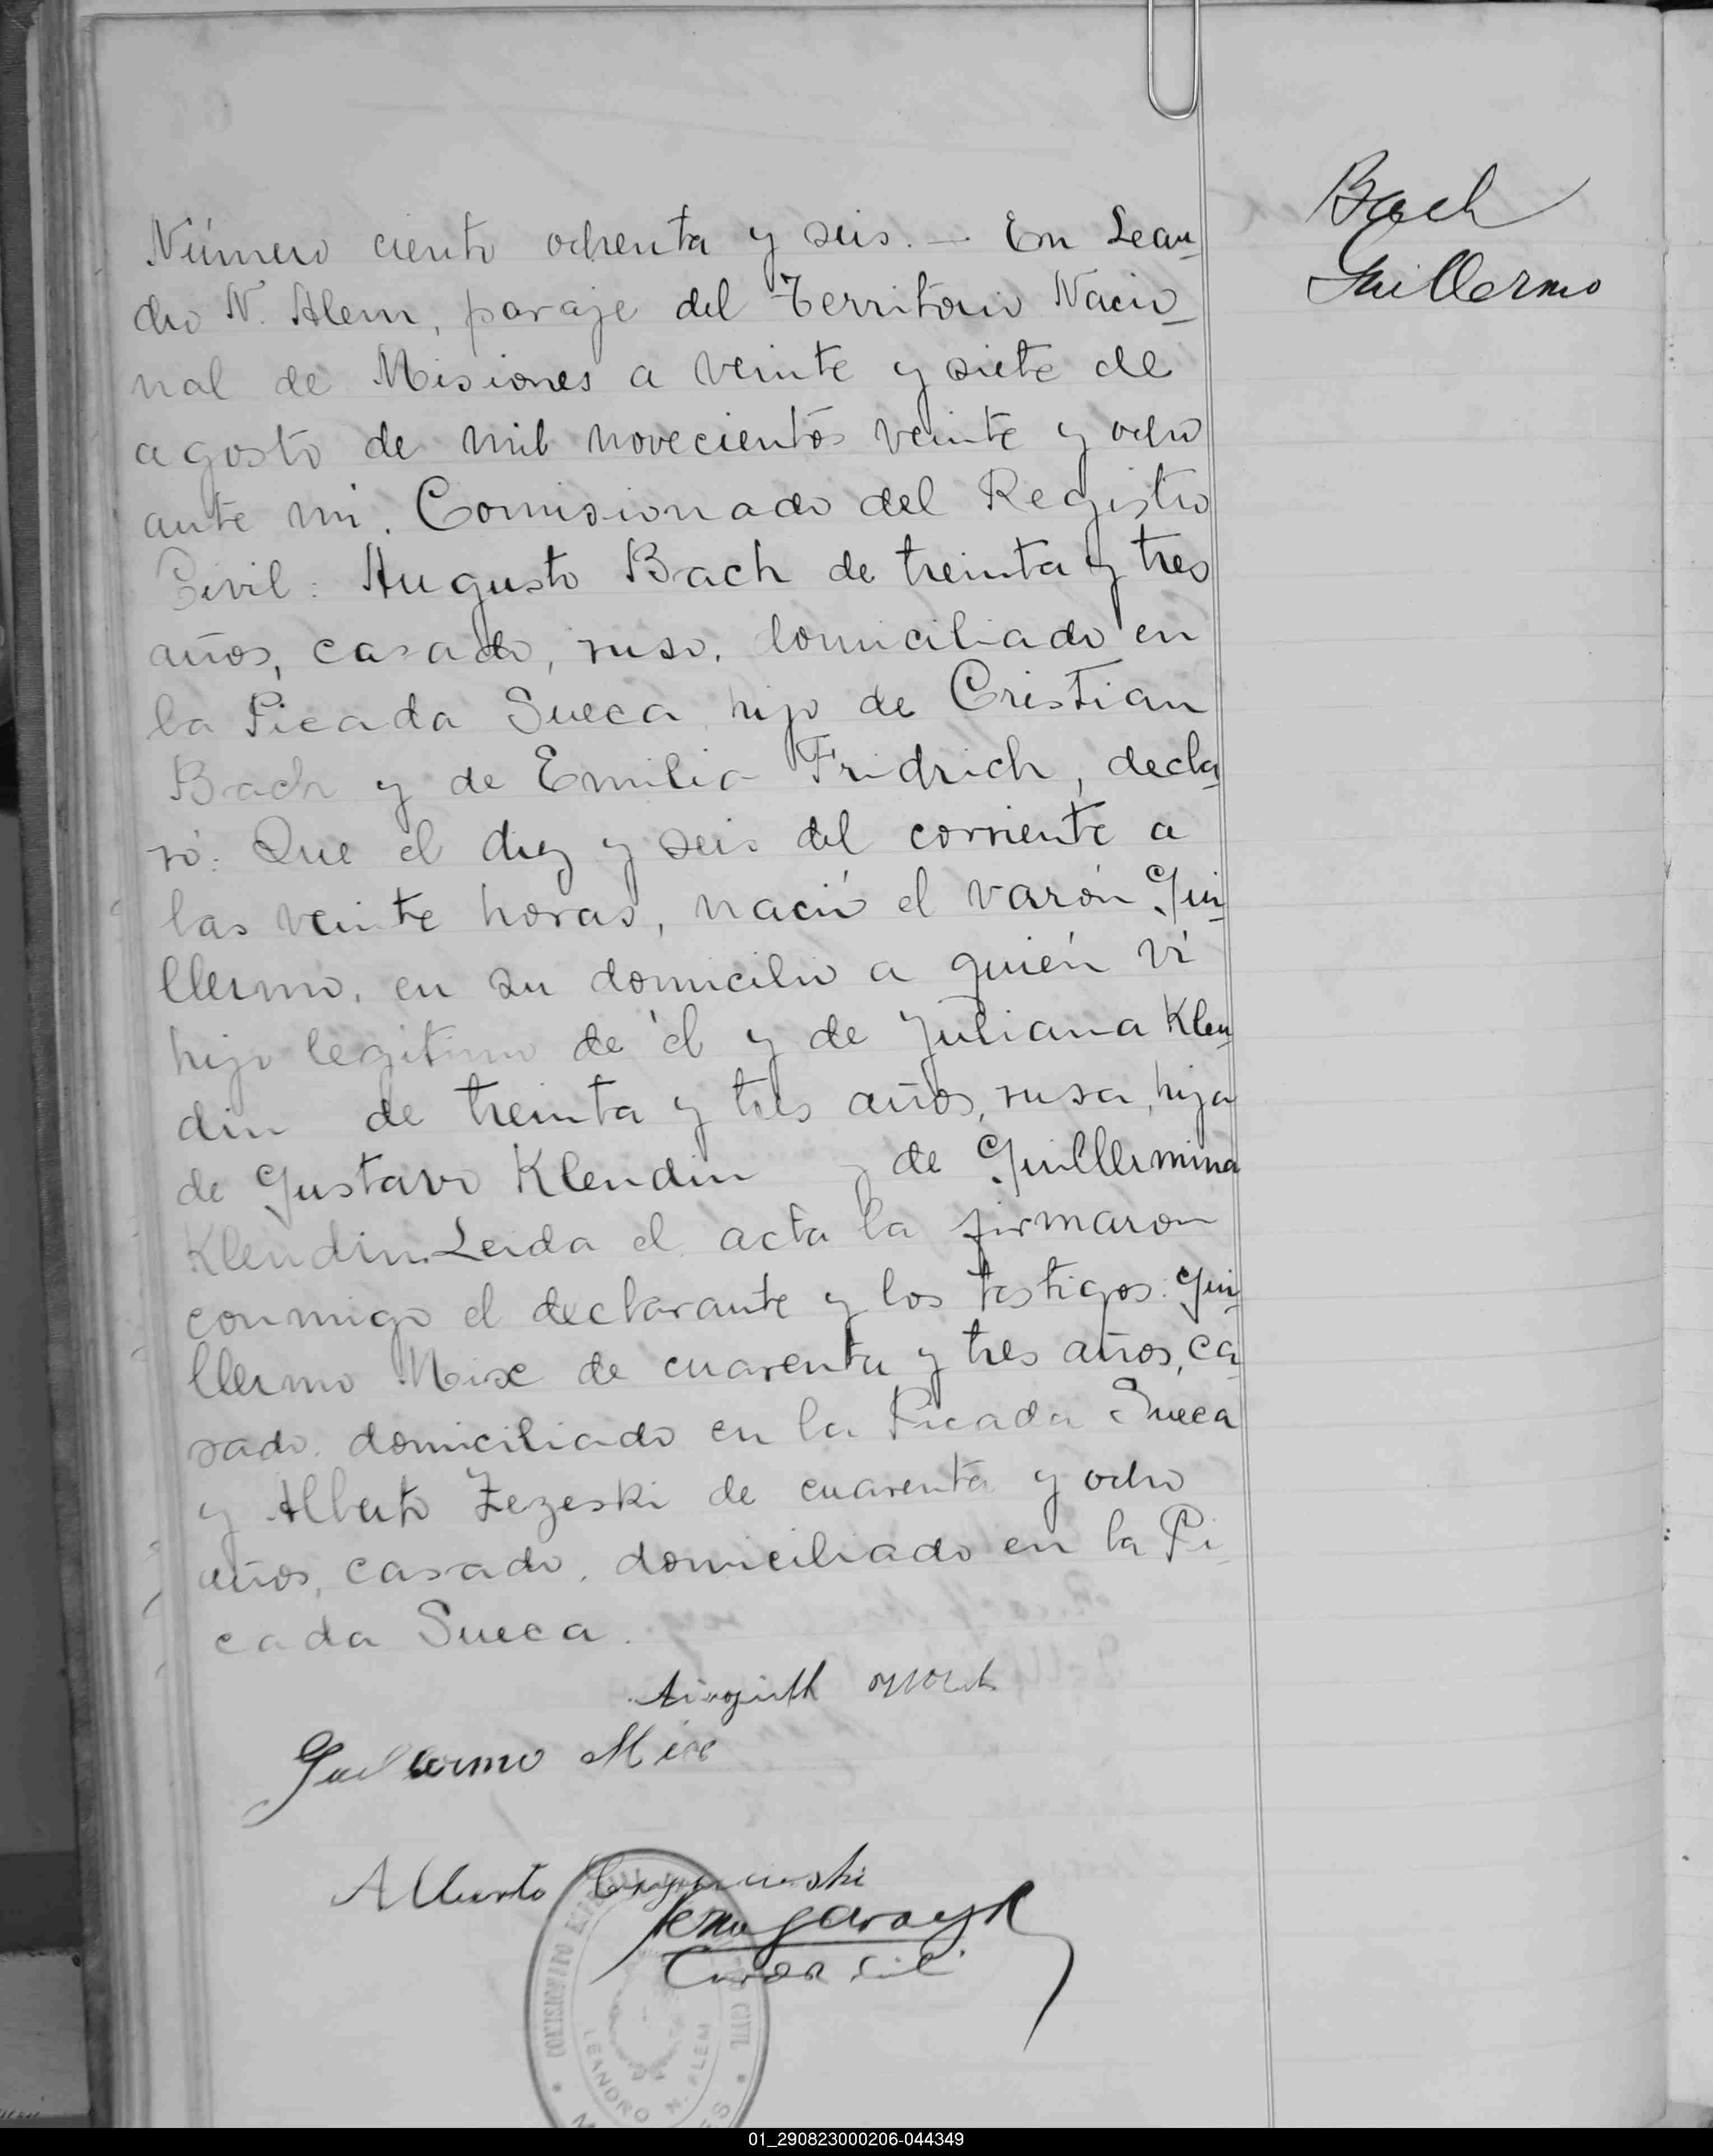 Bach
Guillermo
Número ciento ochenta y seis. — En Lean_
dro N. Alem, paraje del Territorio Nacio_
nal de Misiones a veinte y siete de
agosto de mil novecientos veinte y ocho
ante mí. Comisionado del Registro
Civil: Augusto Bach de treinta y tres
años, casado, ruso, domiciliado en
la Picada Sueca hijo de Cristian
Bach y de Emilia Fridrich, decla_
ró: Que el diez y seis del corriente a
las veinte horas, nació el varón Gui_
llermo, en su domicilio a quién ví
hijo legítimo de él y de Juliana Klen_
din de treinta y tres años, rusa, hija
de Gustavo Klendin y de Guillermina
Klendin. Leida el acta la firmaron
conmigo el declarante y los testigos: Gui_
llermo Mix de cuarenta y tres años, ca_
sado, domiciliado en la Picada Sueca
y Alberto Zezeski de cuarenta y ocho
años, casado, domiciliado en la Pi_
cada Sueca.
Guillermo Mix
Alberto
COMISIONADO CIVIL
LEANDRO N. ALEM
01_290823000206-044349